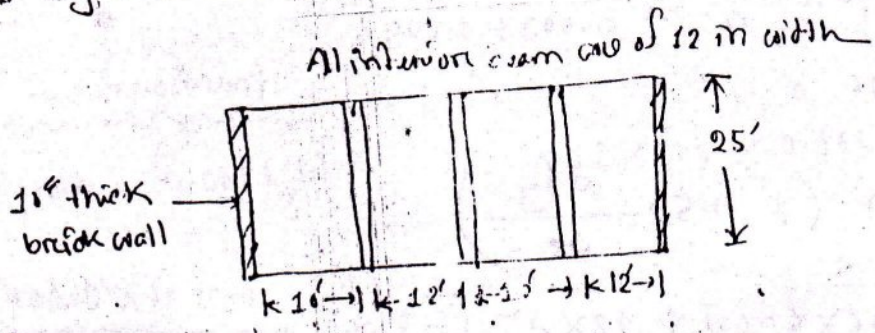 All interior beam are of 12 in width
25'
10" thick
brick wall
10' 12' 12'